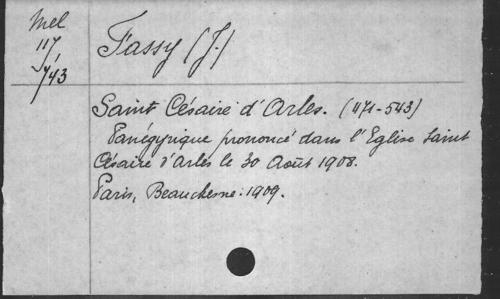 Mel
117/
743
Fassy (J.)
Saint Césaire d'Arles. (471-543)
Panégyrique prononcé dans l'Eglise Saint
Césaire d'Arles le 30 Août 1908.
Paris, Beauchesne: 1909.